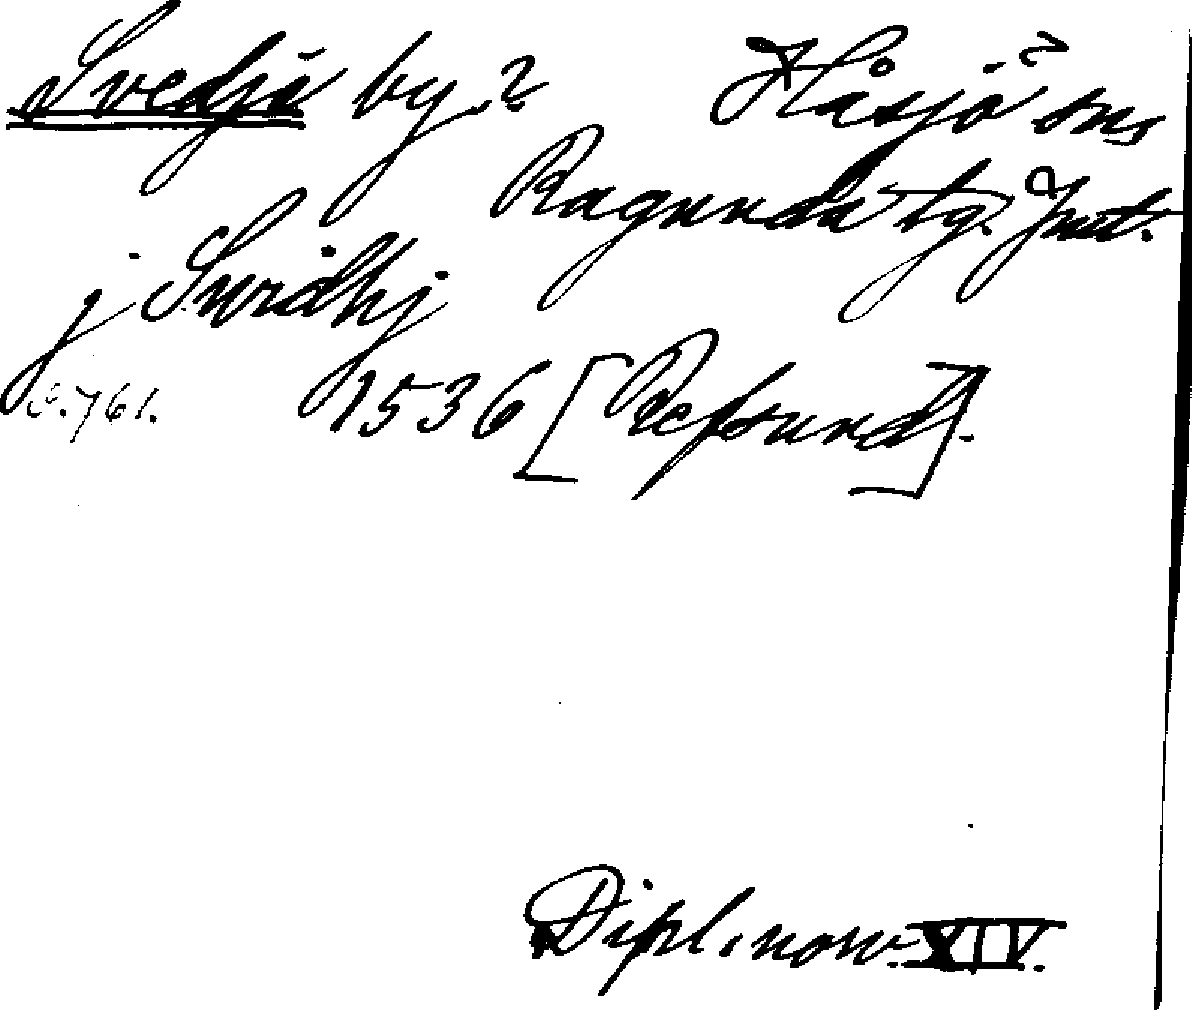 Svedjä by? Håsjö? sns
Ragunda tg. Jmt.
j Swidhj
s. 761. 1536 [Refsund].
Dipl. norv. XIV.